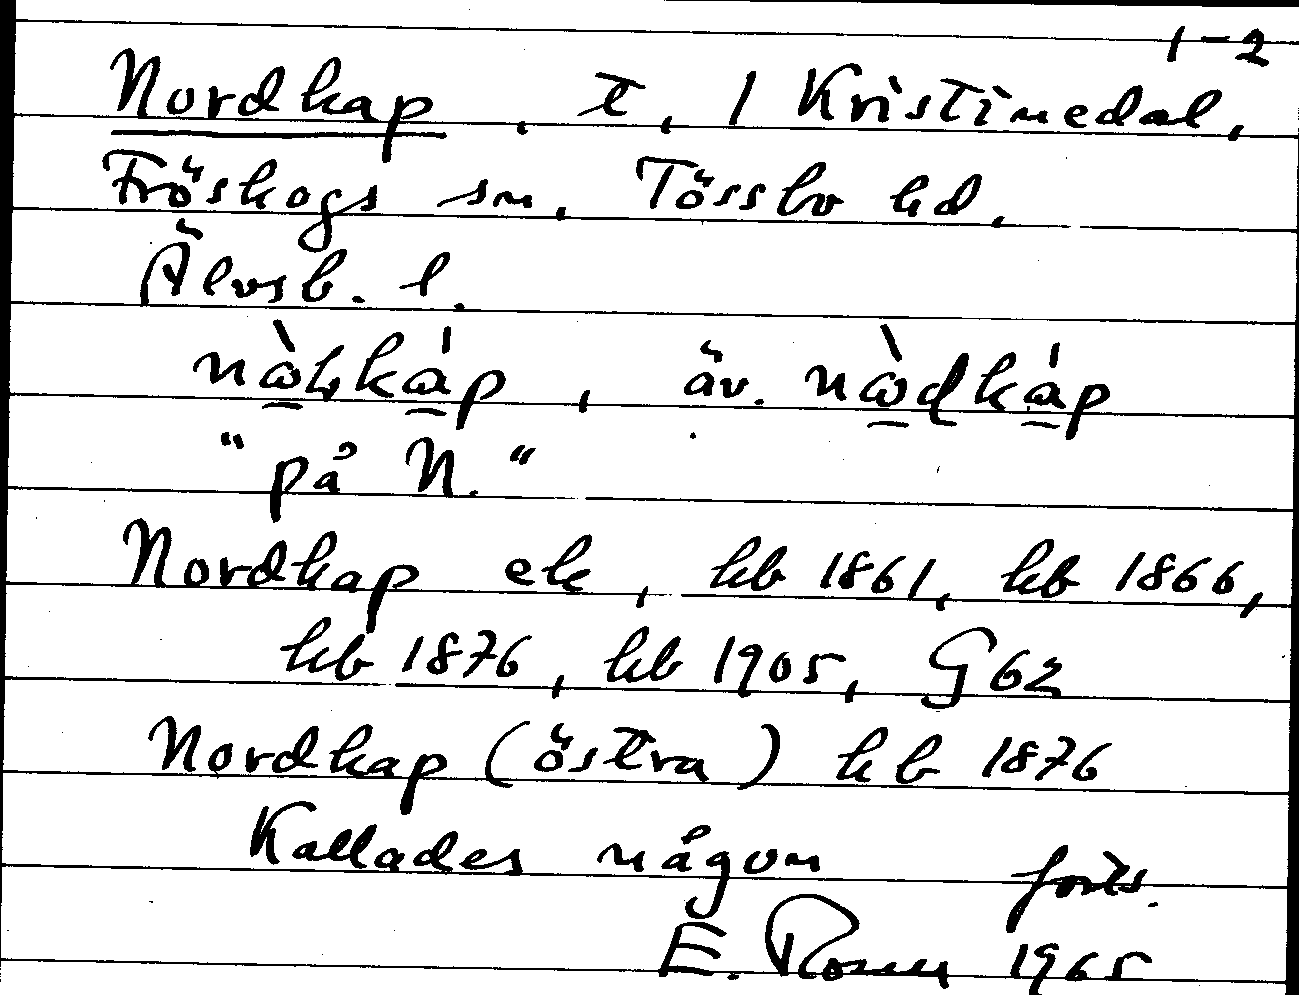 1-2
Nordkap, t, 1 Kristinedal,
Fröskogs sn. Tössbo hd.
Älvsb. l.
"på N."
Nordkap ek, kb 1861, kb 1866,
kb 1876, kb 1905, G 62
Nordkap (östra) kb 1876
Kallades någon forts.
E. Rosell 1965